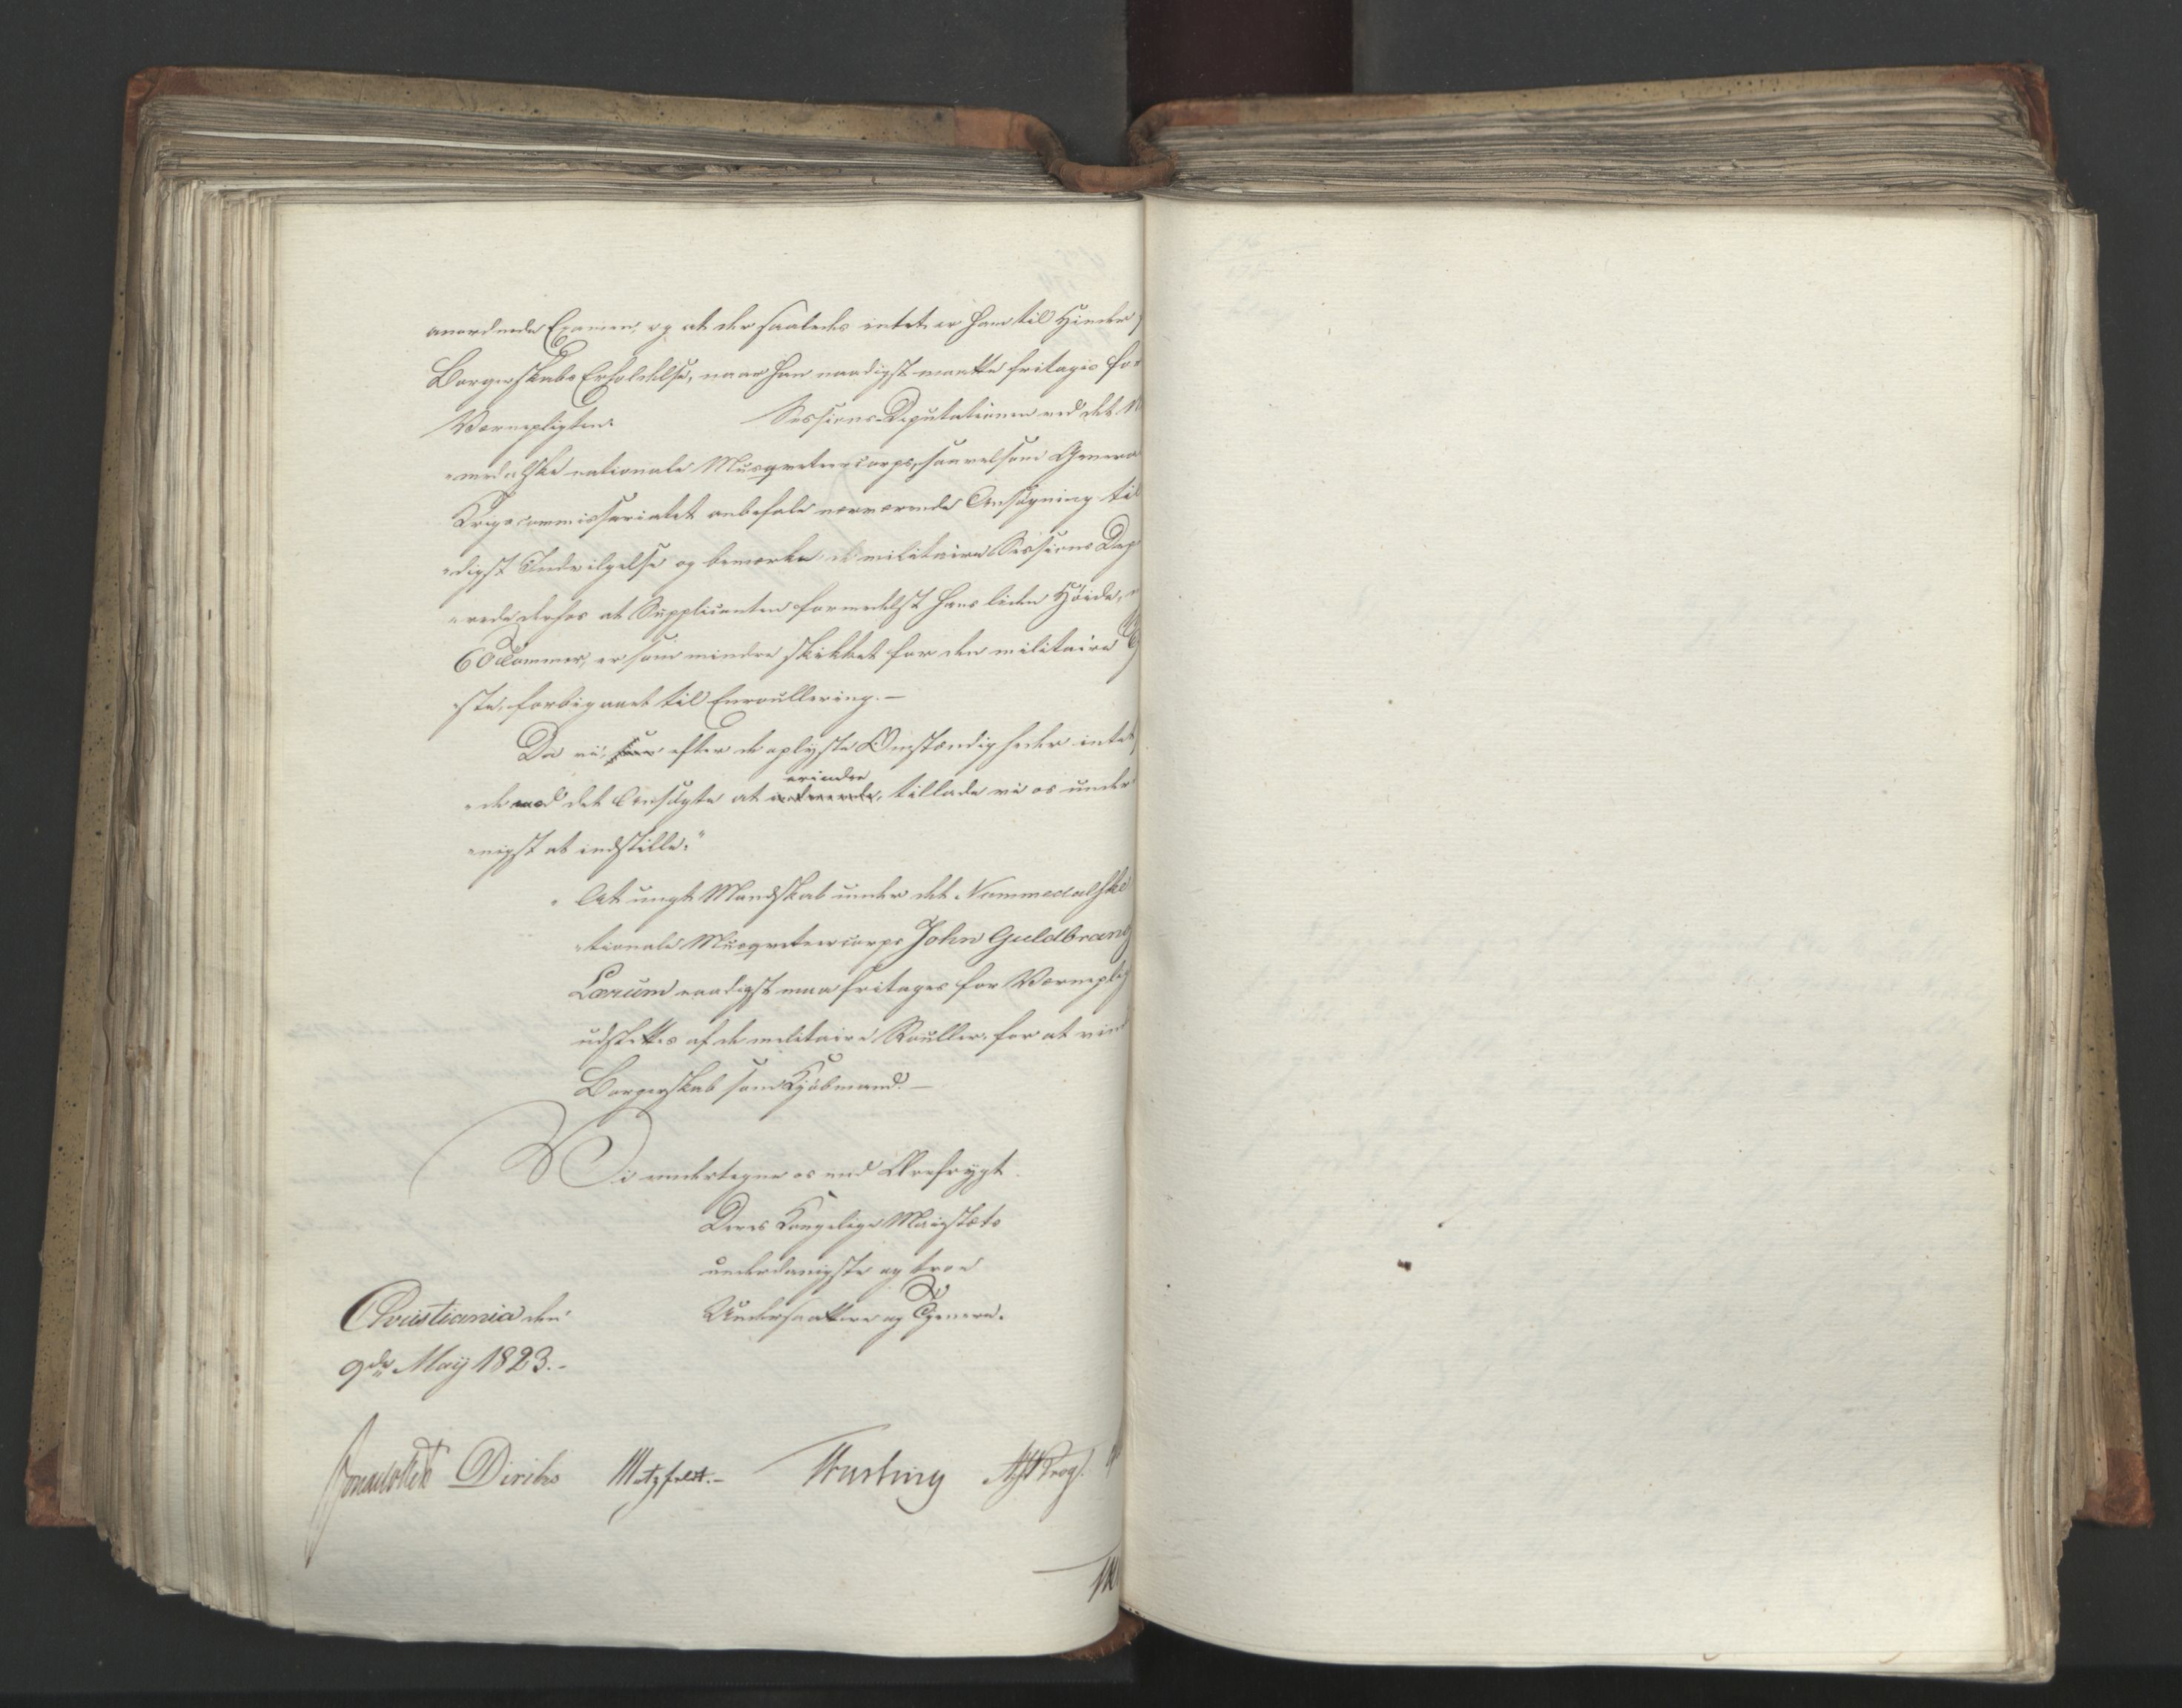 anordnede Examen, og at der saaledes intet er ham til Hinder
Borgerskabs Erholdelse, naar han naadigst maatte fritages for
Værnepligten. Sessions-Deputationen ved det
"medalske nationale Musqueteercorps, saavelsom General
Krigscommissariatet anbefale nærværende Ansøgning til
"digst Indvilgelse og bemærke de militaire Sessions Dep
"rede derhos at Supplicanten formedelst hans liden Høide,
60 Tommer, er som mindre skikket for den militaire
"ste, forbigaaet til Enroullering.—
Da vi, efter de oplyste Omstændigheder intet
"de mod det Ansøgte at erindre, tillade vi os under
"nigst at indstille:"
"At ungt Mandskab under det Nummedalske
"tionale Musqueteercorps John Guldbrand
Lærum naadigst maa fritages for Værneplig
udslettes af de militaire Rouller, for at vin
Borgerskab som Kjøbmand.—
Vi undertegne os med Ærefrygt
Deres Kongelige Majestæts
underdanigste og troe
Undersaatter og Tjenere.
Christiania den
9de May 1823.-
Diriks Motzfeldt.- Krog